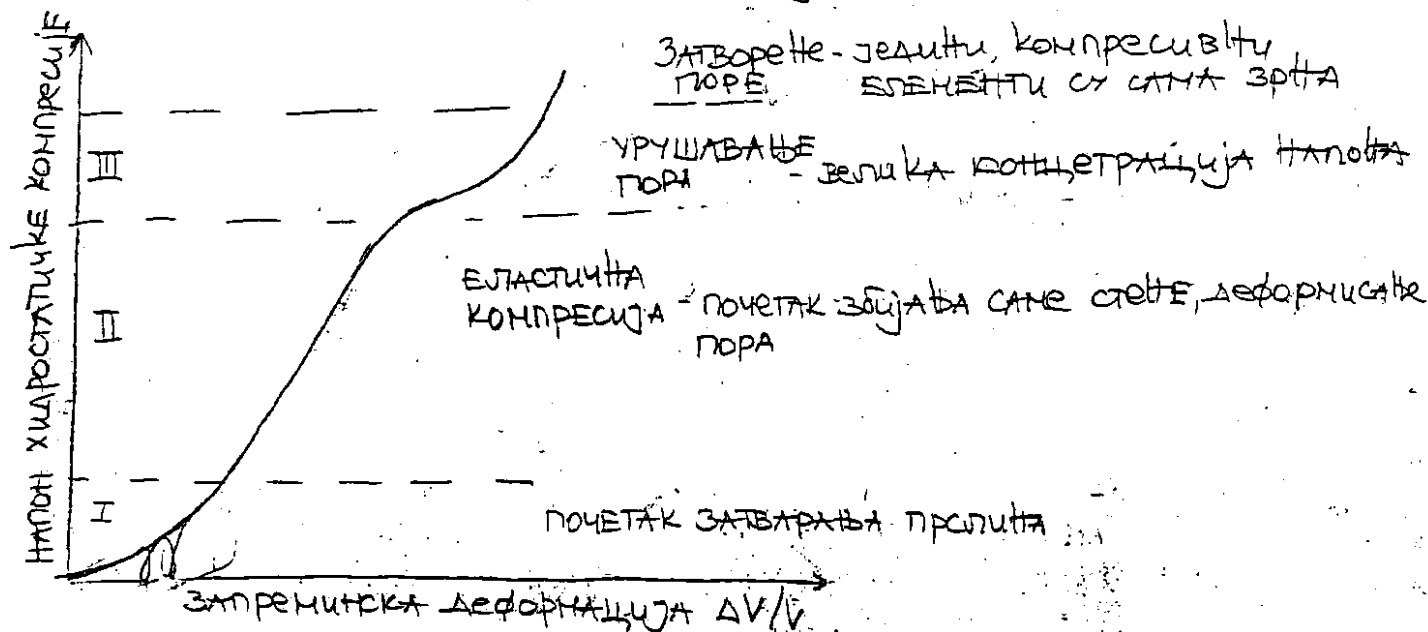 НАПОН ХИДРОСТАТИЧКЕ КОМПРЕСИЈЕ
ЗАТВОРЕНЕ - ЈЕДИНИ, КОМПРЕСИВНИ
ПОРЕ ЕЛЕМЕНТИ СУ САМА ЗРНА
III
УРУШАВАЊЕ
ПОРА - ВЕЛИКА КОНЦЕТРАЦИЈА НАПОНА
II
ЕЛАСТИЧНА
КОМПРЕСИЈА - ПОЧЕТАК ЗБИЈАЊА САМЕ СТЕНЕ, ДЕФОРМИСАЊЕ
ПОРА
I
ПОЧЕТАК ЗАТВАРАЊА ПРСЛИНА
ЗАПРЕМИНСКА ДЕФОРМАЦИЈА ΔV/V